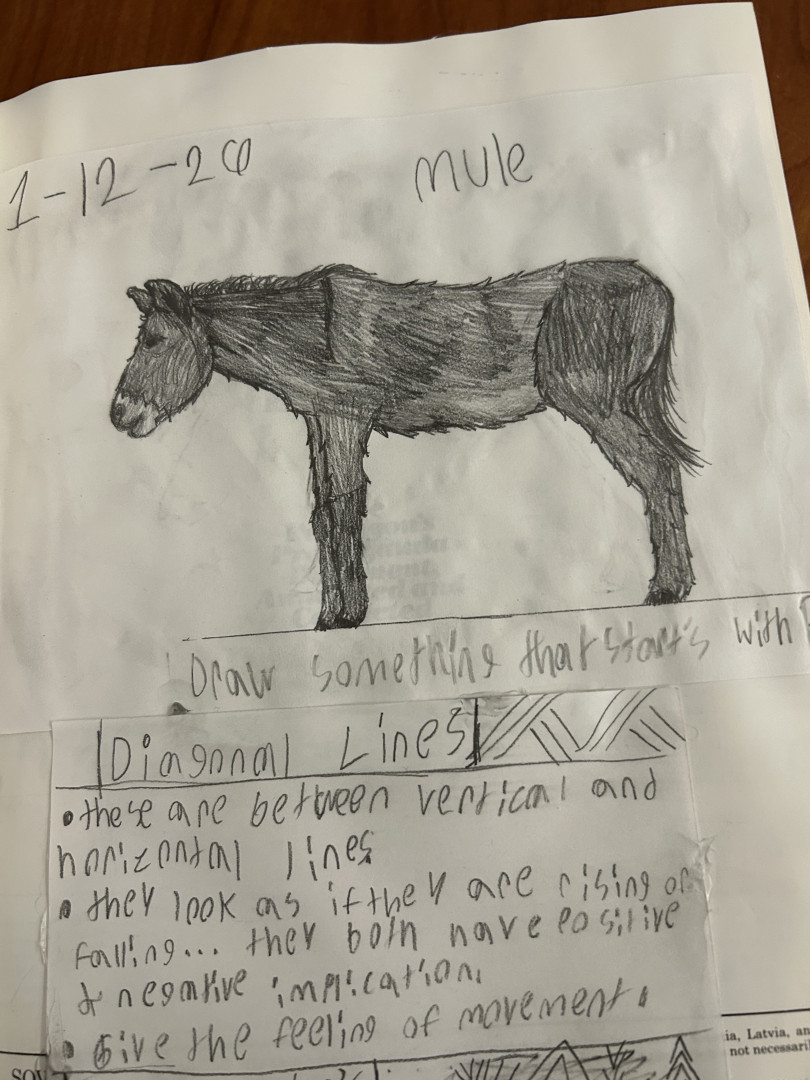 1-12-20
mule
Draw something that start's with
Diagonal Lines
• these are between vertical and
horizontal lines
• they look as if they are rising or
falling... they both have positive
& negative implication.
• Give the feeling of movement.
ia, Latvia, an
not necessari
SOV